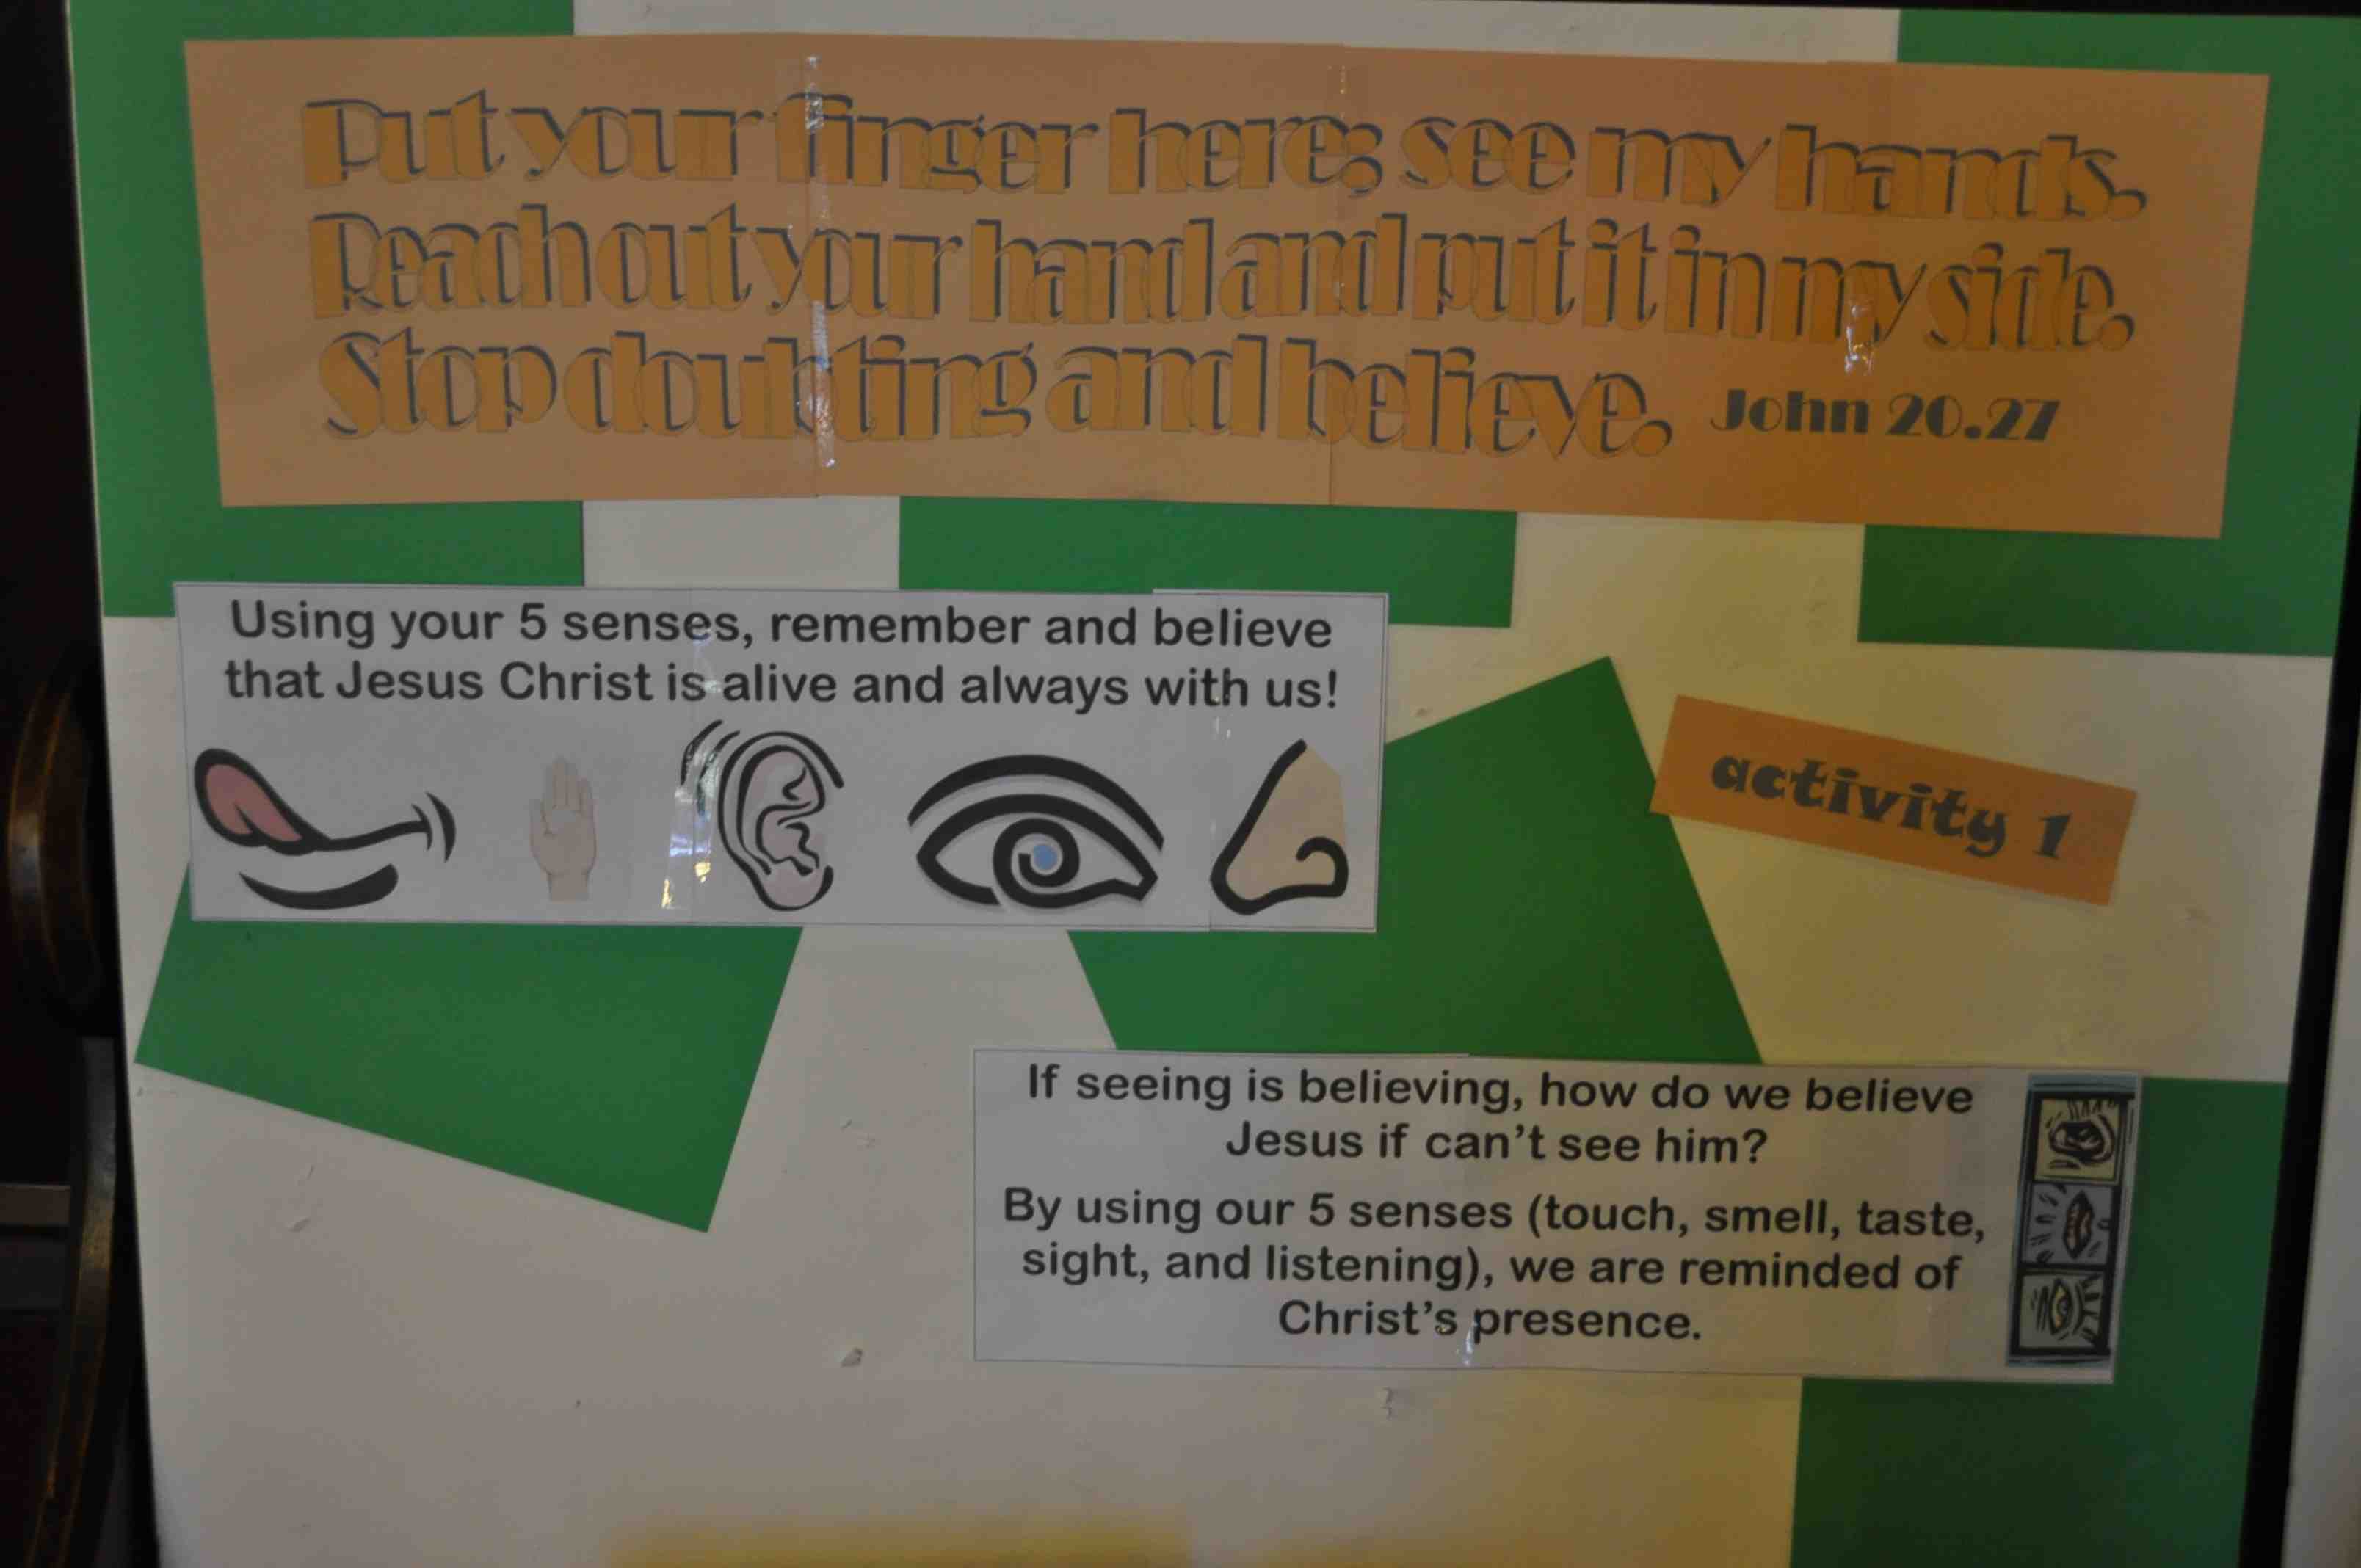 Put your finger here; see my hands.
Reach out your hand and put it in my side.
Stop doubting and believe. John 20.27
Using your 5 senses, remember and believe
that Jesus Christ is alive and always with us!
activity 1
If seeing is believing, how do we believe
Jesus if can't see him?
By using our 5 senses (touch, smell, taste,
sight, and listening), we are reminded of
Christ's presence.